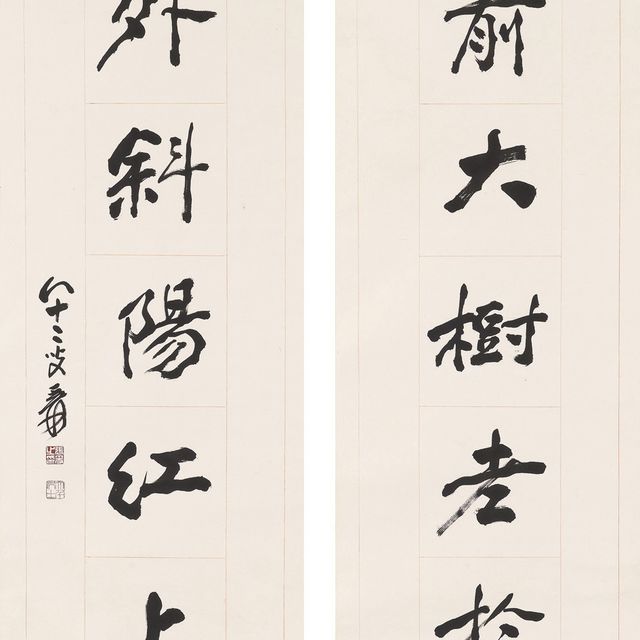 前大樹老於
外斜陽紅上
八十二叟爰